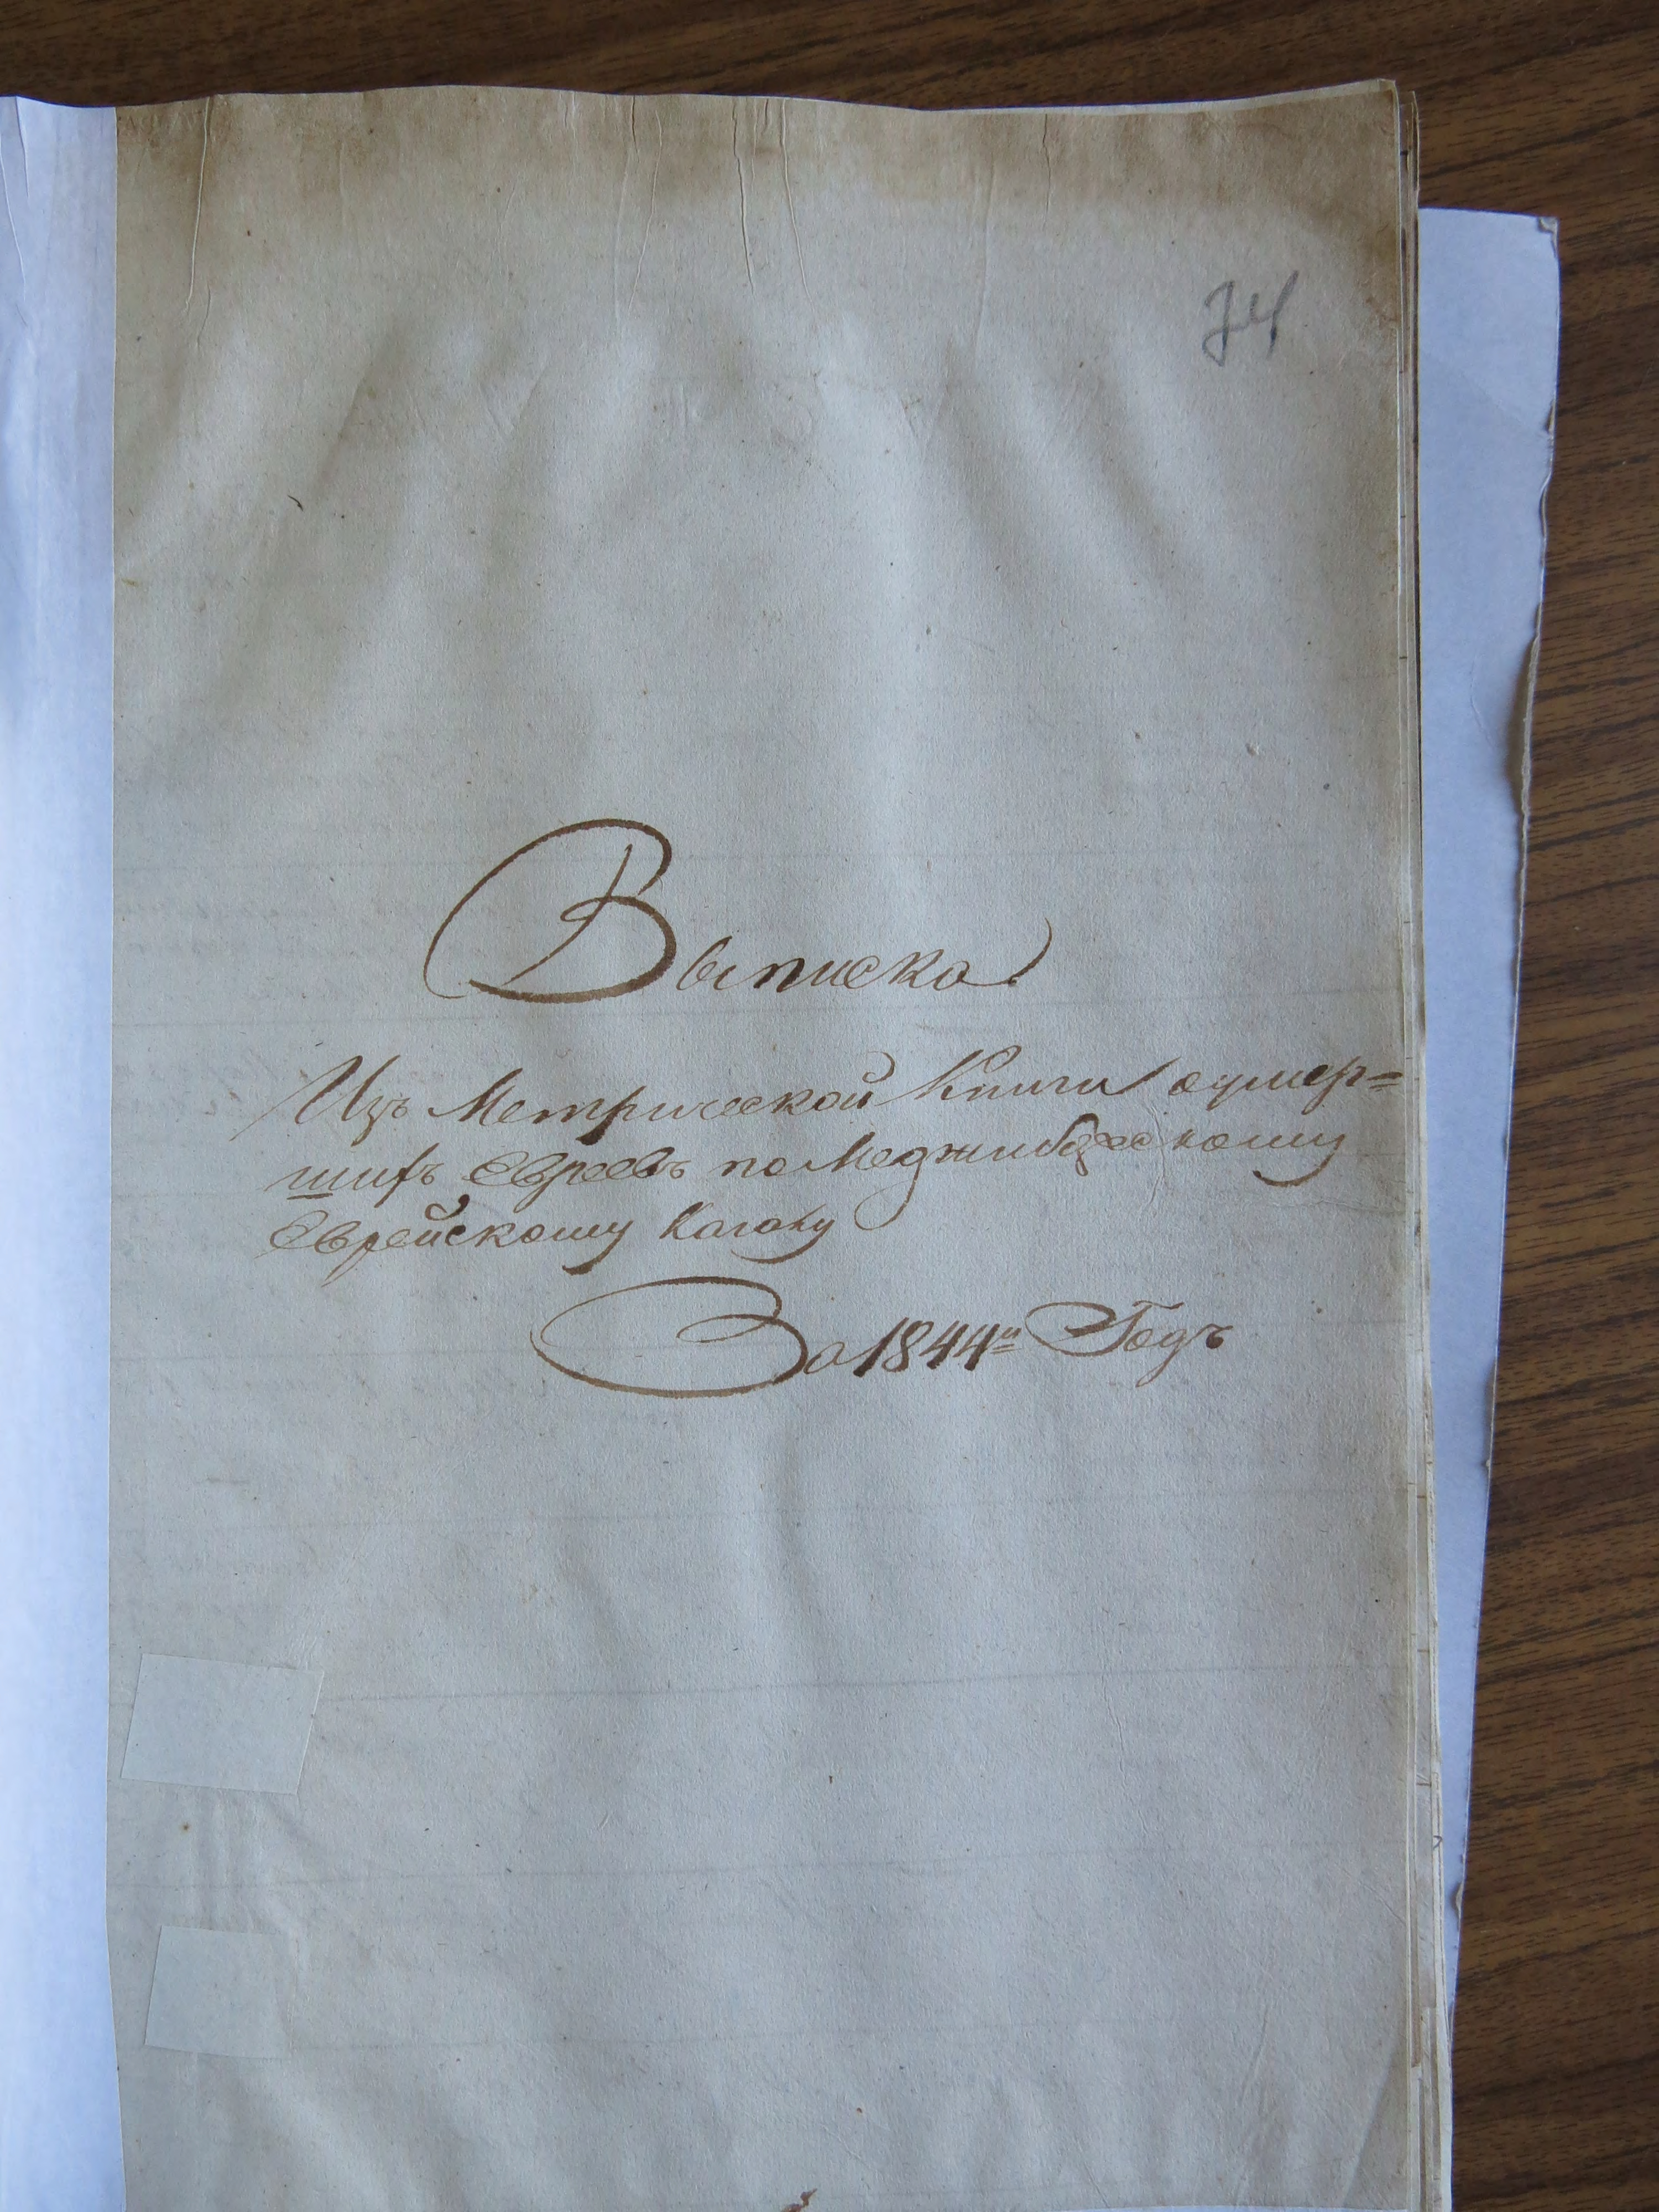 74
Выписка
Изъ Метрической Книги оумер=
шихъ Евреевъ по Меджибожескому
Еврейскому Кагалу
За 1844й Годъ